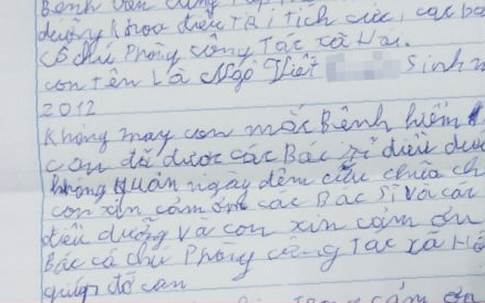 Bệnh Vện cùng
dưỡng khoa điều TRị Tích cực, các bá
cô chú Phòng công Tác xã Hội.
con Tên Là Ngô Việt Sinh n
2012
Không may con mắc Bệnh hiểm
con đã được các Bác sĩ điều dưỡ
không quản ngày đêm cứu chữa ch
con xin cảm ơn các Bác Sĩ và các
điều dưỡng và con xin cảm ơn
Bác cô chú Phòng công Tác xã Hộ
giúp đỡ con
cảm ơn